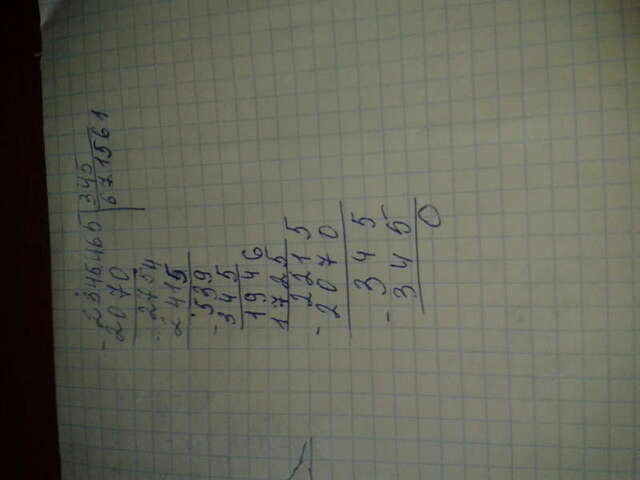 - 2345465 | 345
2070 | 671561
- 2754
2415
- 539
345
1946
1725
- 2215
2070
- 345
345
0